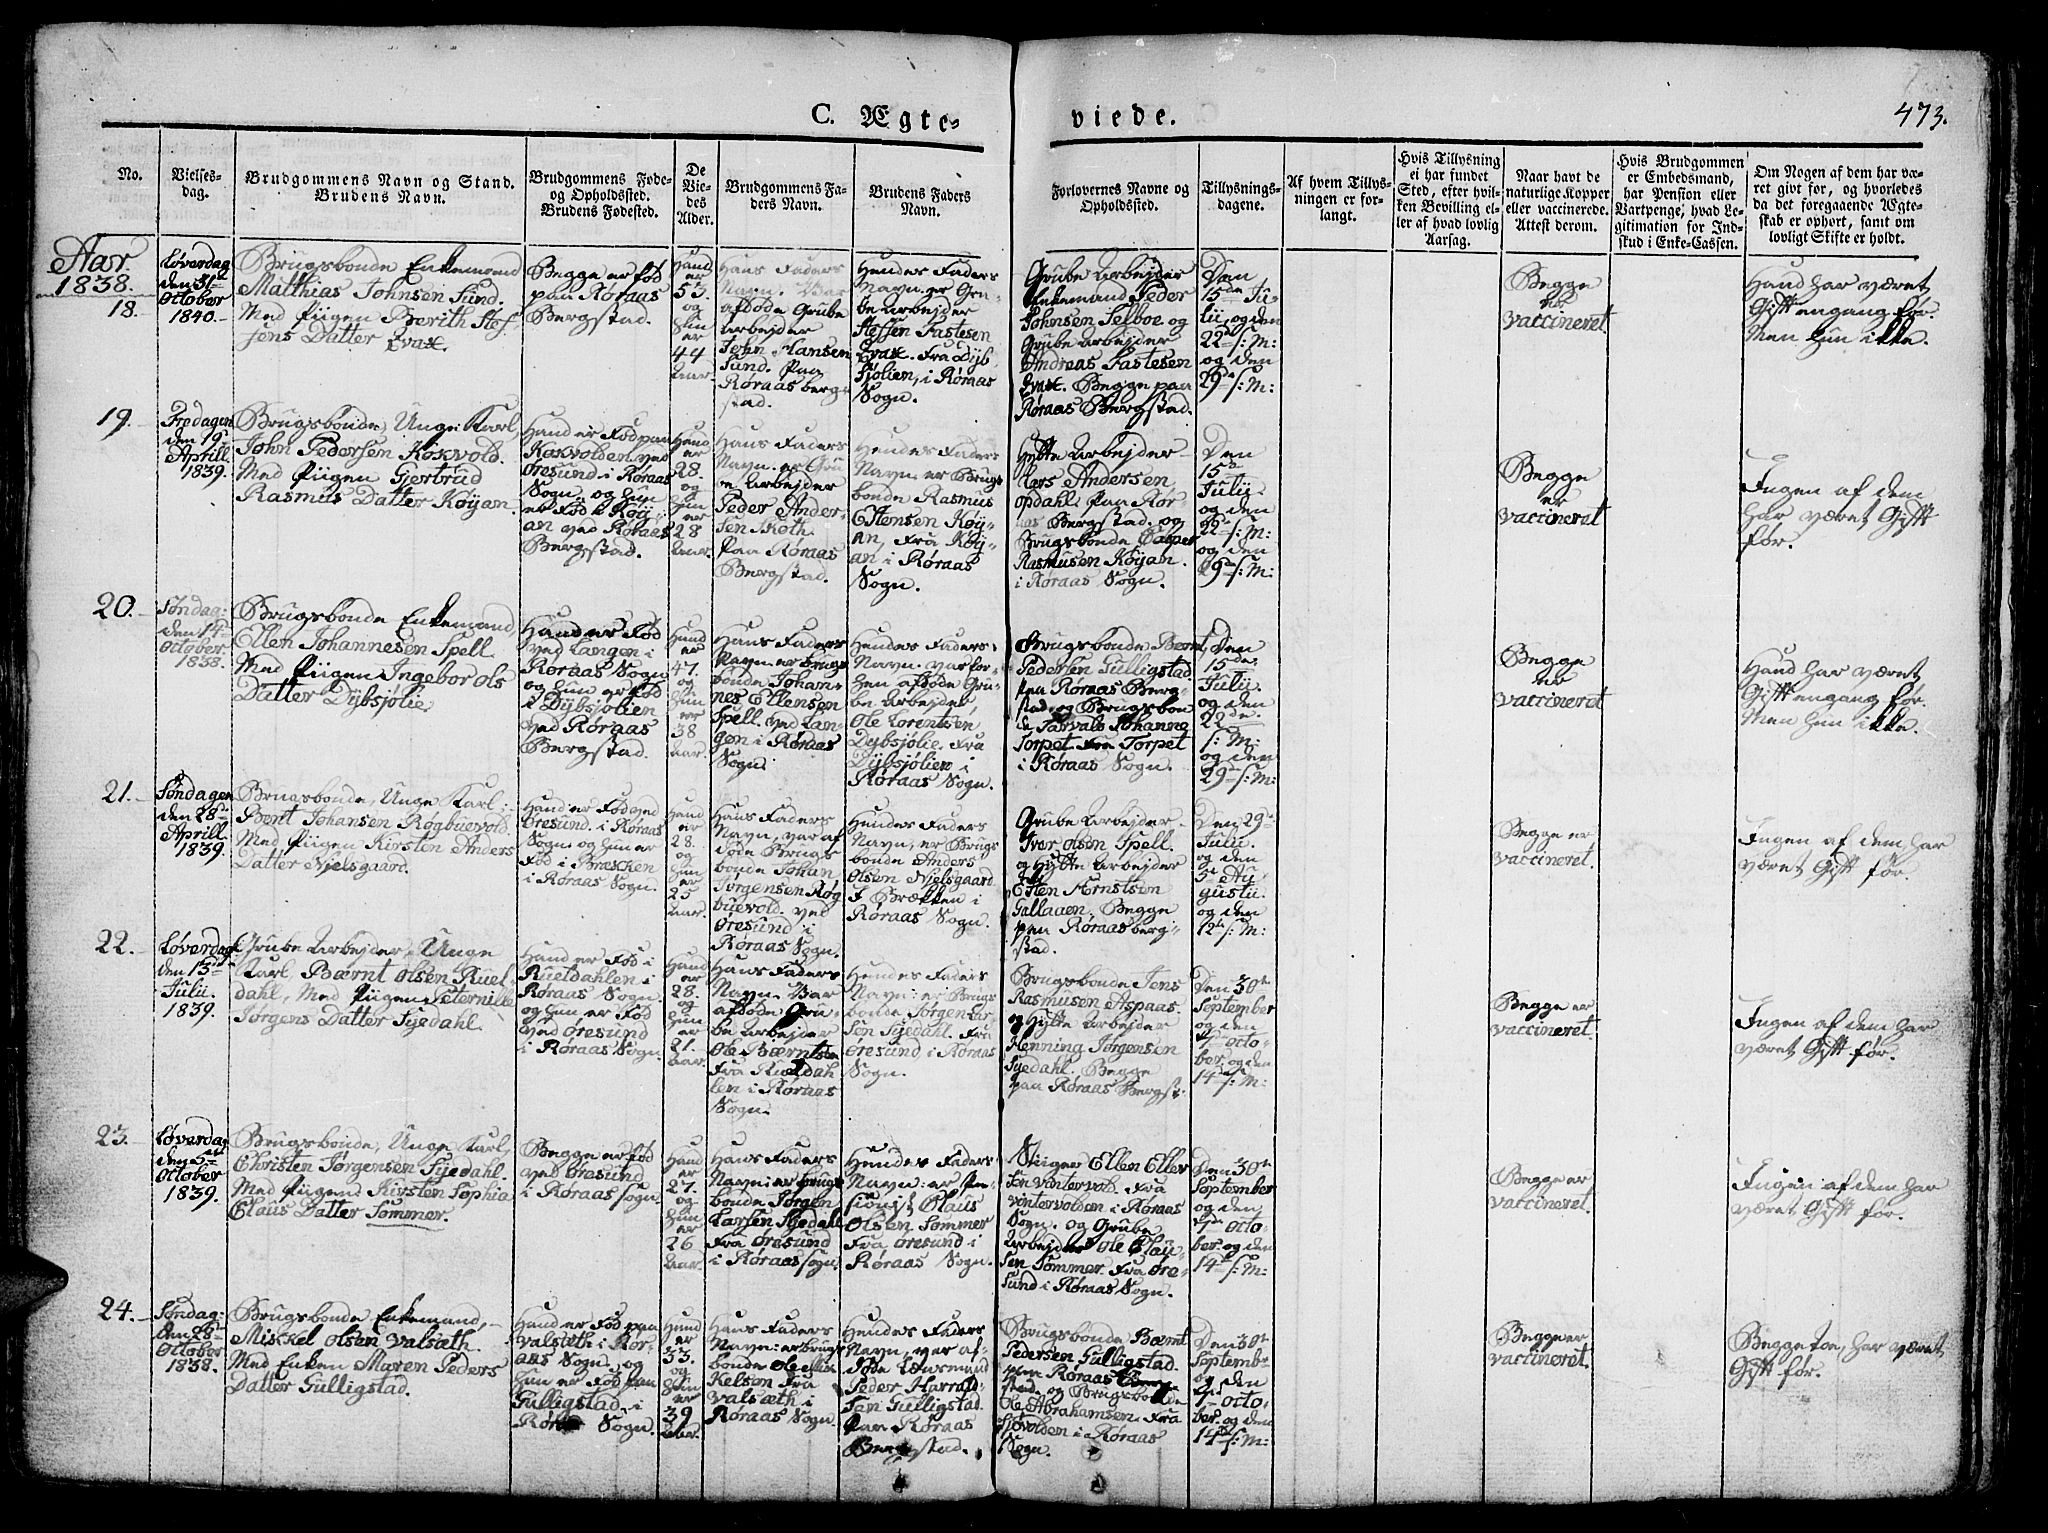 C. Ægte-
viede.
473.
No.
Vielses-
dag.
Brudgommens Navn og Stand.
Brudens Navn.
Brudgommens Føde-
og Opholdssted.
Brudens Fødested.
De
Vie-
des
Alder.
Brudgommens Fa-
ders Navn.
Brudens Faders
Navn.
Forlovernes Navne og
Opholdssted.
Tillysnings-
dagene.
Af hvem Tillys-
ningen er for-
langt.
Hvis Tillysning
ei har fundet
Sted, efter hvil-
ken Bevilling el-
ler af hvad lovlig
Aarsag.
Naar havt de
naturlige Kopper
eller vaccinerede.
Attest derom.
Hvis Brudgommen
er Embedsmand,
har Pension eller
Vartpenge, hvad Le-
gitimation for Ind-
skud i Enke-Cassen.
Om Nogen af dem har væ-
ret givt før, og hvorledes
da det foregaaende Ægte-
skab er ophørt, samt om
lovligt Skifte er holdt.
Aar.
1838.
18.
Løverdag
den 31te
October
1840.
Brugsbonde Enkemand
Matthias Johnsen Sund.
Med Piigen Berith Stef
fens Datter Evax.
Begge er fød
paa Røraas
Bergstad.
Hand
er
53.
og
Hun
er
44
Aar.
Hans Faders
Navn. Var
afdøde Grube
Arbejder
John Hansen
Sund. Paa
Røraas berg-
stad.
Hendes Faders
Navn er Gru-
be Arbejder
Steffen Fastesen
Evax. Fra Dyb
sjølien, i Røraas
Sogn.
Grube Arbejder
Enkemand Peder
Johnsen Selboe og
Grube Arbejder
Andreas Fastesen
Evax. Begge paa
Røraas Bergstad.
Den
15de Ju-
lii, og den
22de s: M:
og den
29de s: M:
Begge
er
vaccineret
Hand har været
Gift engang før.
Men hun ikke.
19.
Fredagen
den 19de
Aprill
1839.
Brugsbonde, Unge Karl,
John Pedersen Koxvold.
Med Piigen Gjertrud
Rasmus Datter Køyan.
Hand er Fød paa
Koxvolden ved
Øresund i Røraas
Sogn, og hun
er Fød i Køy-
an ved Røraas
Bergstad.
Hand
er
28.
og
Hun
er
28
Aar.
Hans Faders
Navn er Gru
be Arbejder
Peder Ander-
sen Koth.
Paa Røraas
Bergstad.
Hendes Faders
Navn er Brugs
bonde Rasmus
Estensen Køy-
an, Fra Køy-
an i Røraas
Sogn.
Hytte Arbejder
Lars Andersen
Opdahl Paa Rør-
aas Bergstad. og
Brugsbonde Casper
Rasmusen Køyan.
i Røraas Sogn.
Den
15de
Julij.
og den
22de s: M:
og den
29de s: M:
Begge
er
vaccineret
Ingen af dem
har været Gift
før.
20.
Søndag
den 14de
October
1838.
Brugsbonde Enkemand,
Ellen Johannesen Spell.
Med Piigen Ingebor Ols
Datter Dybsjølie.
Hand er Fød
ved Langen i
Røraas Sogn
og hun er fød
i Dybsjølien
ved Røraas
Bergstad.
Hand
er
47.
og
Hun
er
38
Aar.
Hans Faders
Navn er brugs
bonde Johan-
nes Ellensen
Spell, ved Lan-
gen i Røraas
Sogn.
Hendes Faders
Navn. var for-
hen afdøde Gru-
be Arbejder,
Ole Lorentsen
Dybsjølie. Fra
Dybsjølien i
Røraas Sogn.
Brugsbonde Bernt
Pedersen Gulligstad
paa Røraas Berg-
stad, og Brugsbon
de Tarvald Johannes
Torpet Fra Torpet
i Røraas Sogn.
Den
15de
Julij.
og den
22de.
s: M:
og den
29de s: M:
Begge
er
vaccineret
Hand har været
Gift engang før.
Men hun ikke.
21.
Søndagen
den 28de
Aprill
1839.
Brugsbonde, Unge Karl
Bent Johansen Røgbuevold.
Med Piigen Kirsten Anders
Datter Njelsgaard.
Hand er Fød ved
Øresund i Røraas
Sogn og hun er
Fød i Brækken
i Røraas Sogn.
Hand
er
28.
og
Hun
er
25
Aar.
Hans Faders
Navn, var af
døde Brugs
bonde Johan
Jørgensen Røg
buevold. ved
Øresund i
Røraas Sogn.
Hendes Faders
Navn, er Brugs
bonde Anders
Olsen Njelsgaard
I Brækken i
Røraas Sogn.
Grube Arbejder
Iver Olsen Spell.
og Hytte Arbejder
Esten Arnstsen
Gallaaen, Begge
paa Røraas berg-
stad.
Den 29de
Julii.
og den
5te Au-
gustii.
og den
12te s: M:
Begge er
vaccineret.
Ingen af dem har
været Gift før.
22.
Løverdag
den 13de
Julii.
1839.
Grube Arbejder, Unge
Karl Bærnt Olsen Ruet-
dahl, Med Piigen Peternille
Jørgens Datter Syedahl.
Hand er Fød i
Ruetdahlen i
Røraas Sogn
og hun er Fød
ved Øresund
i Røraas Sogn.
Hand
er
28.
og
Hun
er
21.
Aar.
Hans Faders
Navn. Var
afdøde Gru-
be Arbejder
Ole Bærntsen
Fra Ruetdah
len i Røraas
Sogn.
Hendes Faders
Navn: er Brugs
bonde Jørgen Lar-
sen Syedahl. Fra
Øresund i Røraas
Sogn.
Brugsbonde Jens
Rasmusen Aspaas.
og Hytte Arbejder
Henning Jørgensen
Syedahl. Begge
paa Røraas Bergst:
Den 30te
September
og den
7de Octo-
ber. og den
14de s: M:
Begge er
vaccineret.
Ingen af dem har
været Gift før.
23.
Løverdag
den 5te
October
1839.
Brugsbonde, Unge Karl,
Christen Jørgensen Syedahl.
Med Piigen Kirsten Sophia
Claus Datter Sommer.
Begge er Fød
ved Øresund
i Røraas sogn.
Hand
er
27.
og
Hun
er
26
Aar.
Hans Faders
Navn: er brugs
bonde Jørgen
Larsen Syedahl
Fra Øresund
i Røraas sogn.
Hendes Faders
Navn: er Pen-
sionist Claus
Olsen Sommer
Fra Øresund i
Røraas Sogn.
Stiiger Ellen Eller
sen Vintervold. Fra
Vintervolden i Røraas
Sogn. og Grube
Arbejder Ole Clau-
sen Sommer. Fra Øre-
sund i Røraas Sogn.
Den 30te
September
og den
7de Octo-
ber. og den
14de s: M:
Begge er
vaccineret.
Ingen af dem har
været Gift før.
24.
Søndag
den 28de
October
1838.
Brugsbonde Enkemand,
Mickel Olsen Valsæth.
Med Enken Maren Peders
Datter Gulligstad.
Hand er Fød paa
Valsæth i Rør-
aas Sogn. og
hun er Fød paa
Gulligstad, i
Røraas Sogn.
Hand
er
33.
og
Hun
er
39
Aar.
Hans Faders
Navn: er brugs
bonde Ole Mik
kelsen Fra
Valsæth i
Røraas Sogn.
Hendes Faders
Navn, var af-
døde Lænsmand
Peder Harrald-
sen Gulligstad.
Paa Røraas
Bergstad.
Brugsbonde Bærnt
Pedersen Gulligstad.
paa Røraas Berg-
stad, og Brugsbonde
Ole Abrahamsen. Fra
Sjøvolden i Røraas
Sogn.
Den 30te
September
og den
7de Octo-
ber. og den
14de s: M:
Begge er
vaccineret.
Begge toe, har været
Gift før.